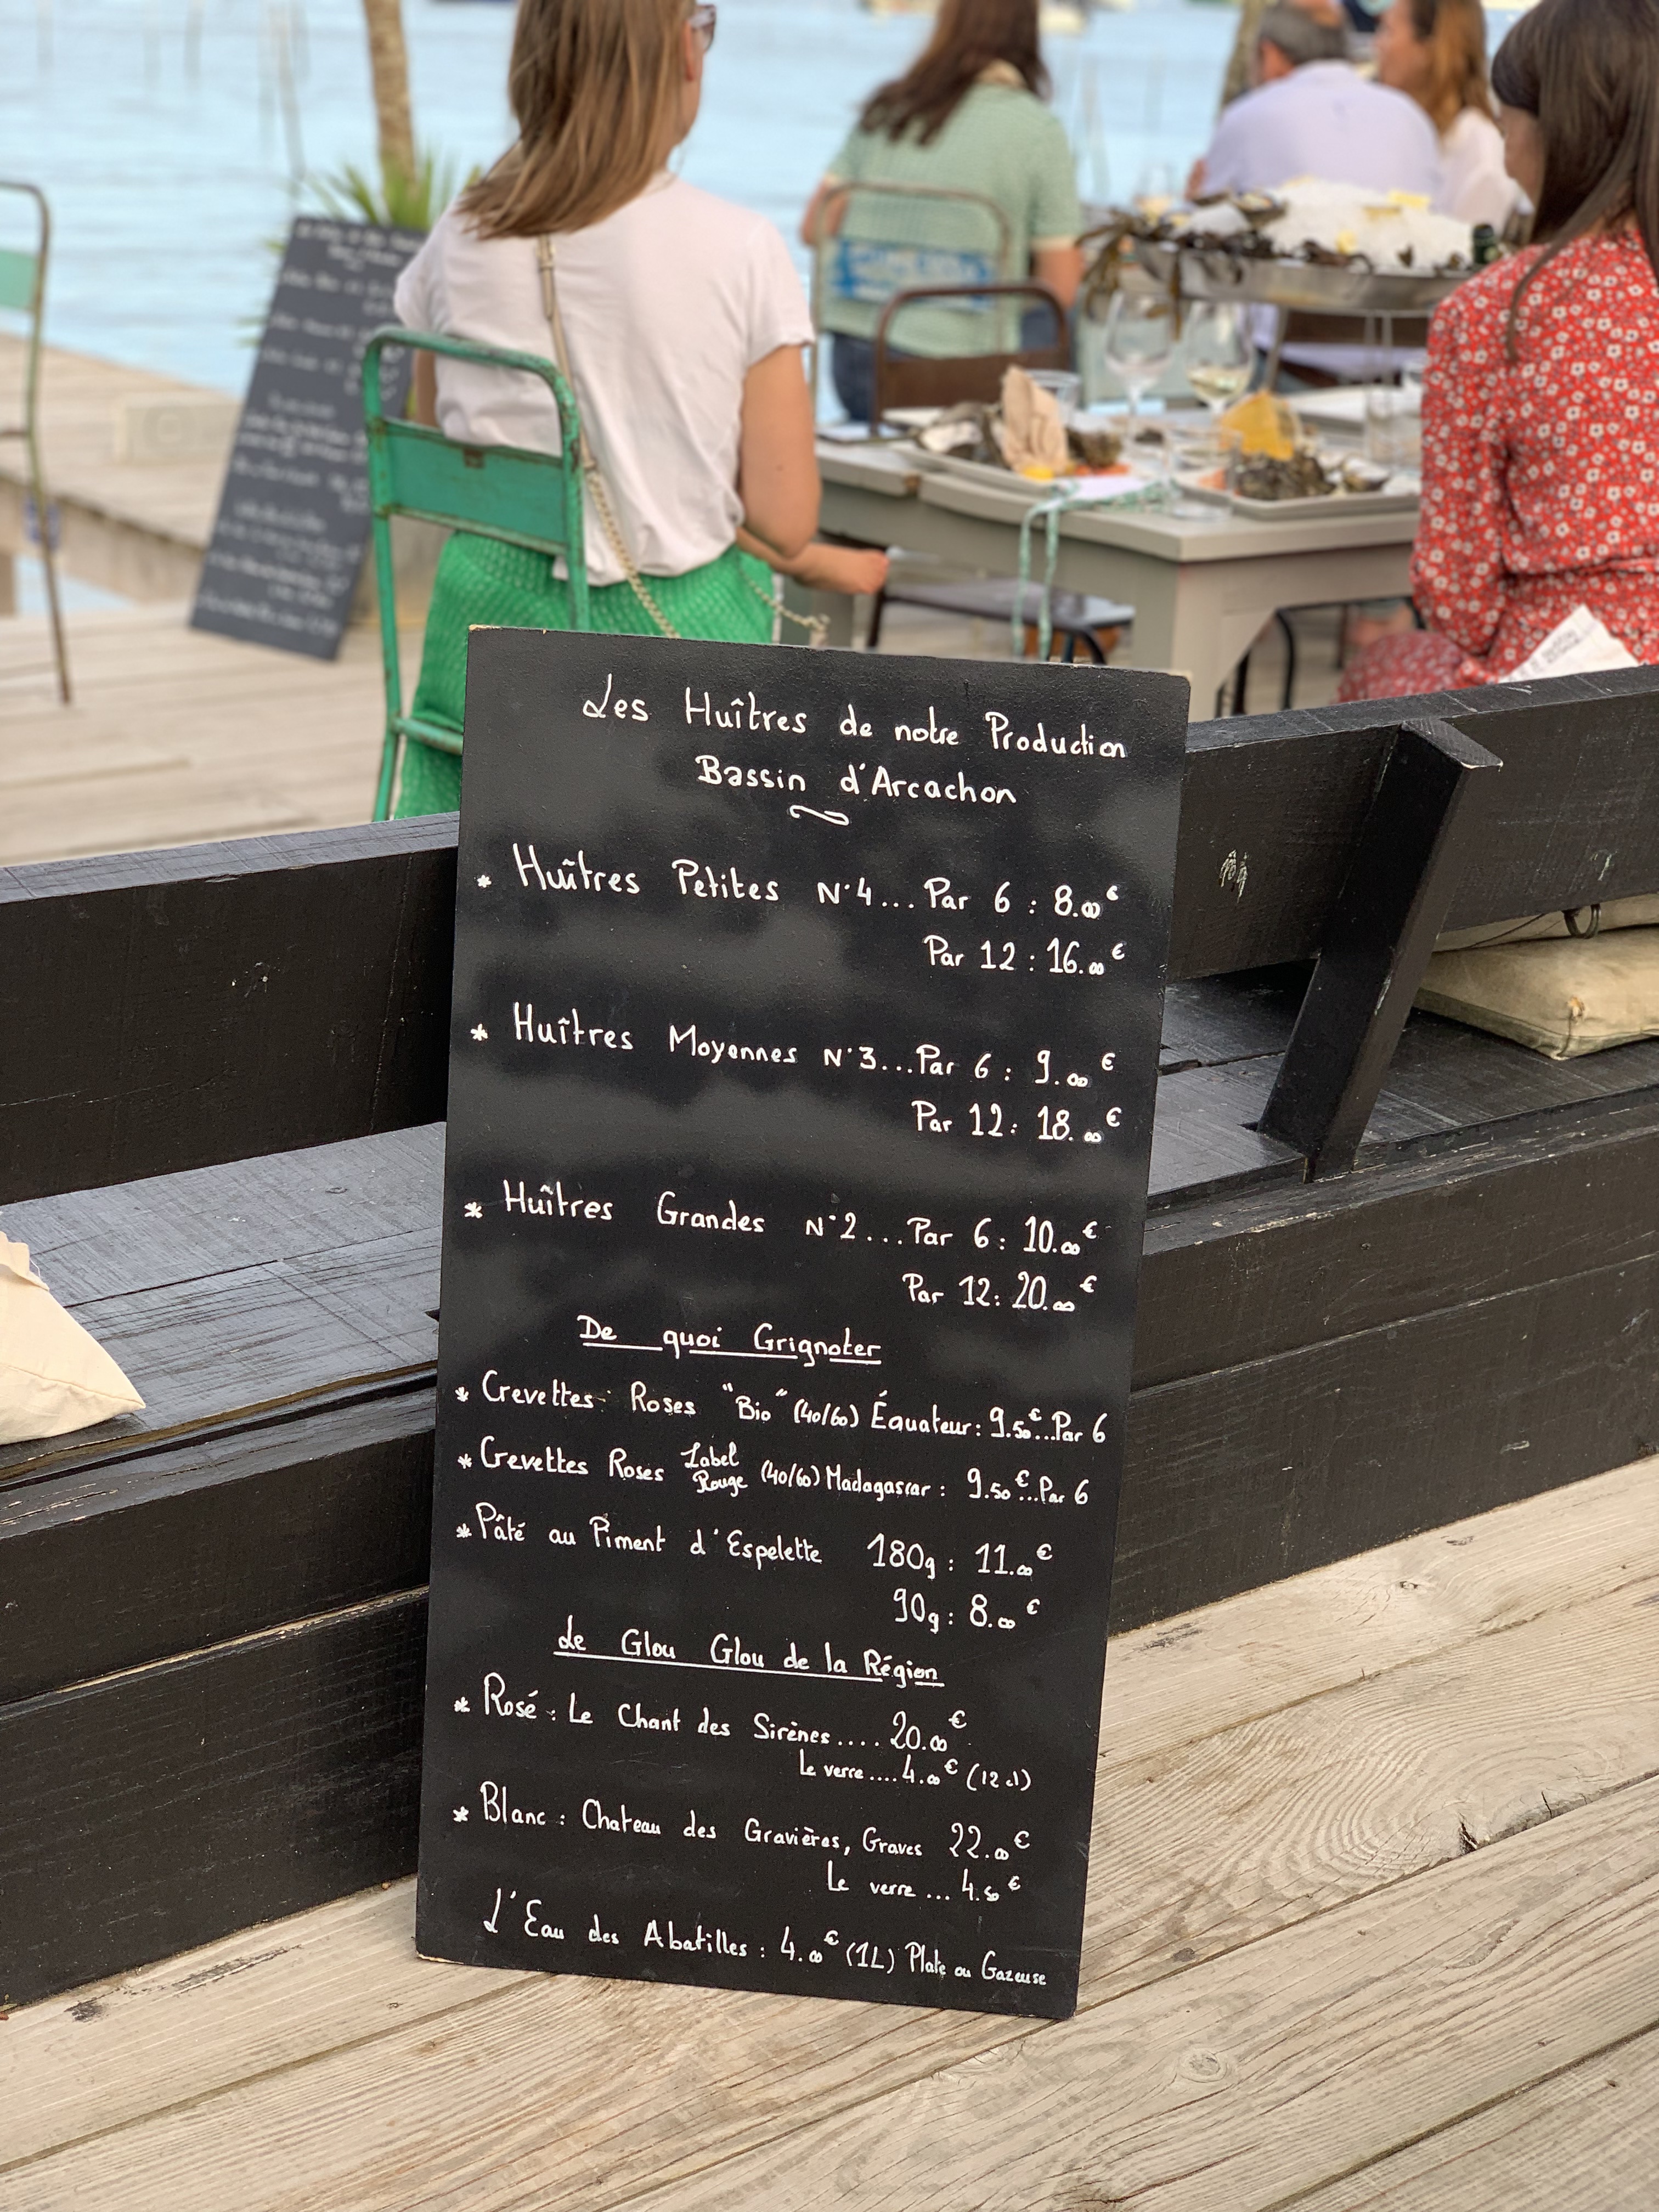 Les Huîtres de notre Production
Bassin d'Arcachon
* Huîtres Petites N°4... Par 6 : 8.00€
Par 12 : 16.00€
* Huîtres Moyennes N°3...Par 6 : 9.00€
Par 12 : 18.00€
* Huîtres Grandes N°2...Par 6 : 10.00€
Par 12 : 20.00€
De quoi Grignoter
* Crevettes Roses "Bio" (40/60) Équateur : 9.50€...Par 6
* Crevettes Roses Label Rouge (40/60) Madagascar : 9.50€...Par 6
* Pâté au Piment d'Espelette 180g : 11.00€
90g : 8.00€
de Glou Glou de la Région
* Rosé : Le Chant des Sirènes.... 20.00€
Le verre....4.00€ (12cl)
* Blanc : Chateau des Gravières, Graves 22.00€
Le verre ... 4.50€
L'Eau des Abatilles : 4.00€ (1L) Plate ou Gazeuse